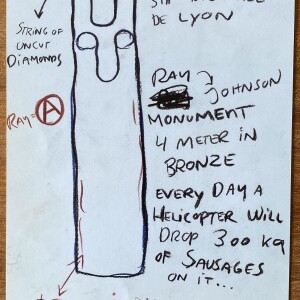 DE LYON
STRING OF
UNCUT
DIAMONDS
RAY
JOHNSON
RAY = A
MONUMENT
4 METER IN
BRONZE
EVERY DAY A
HELICOPTER WILL
DROP 300 KG
OF SAUSAGES
ON IT...